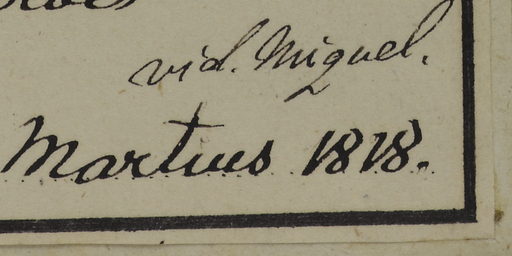 vid. Miquel.
Martius 1818.